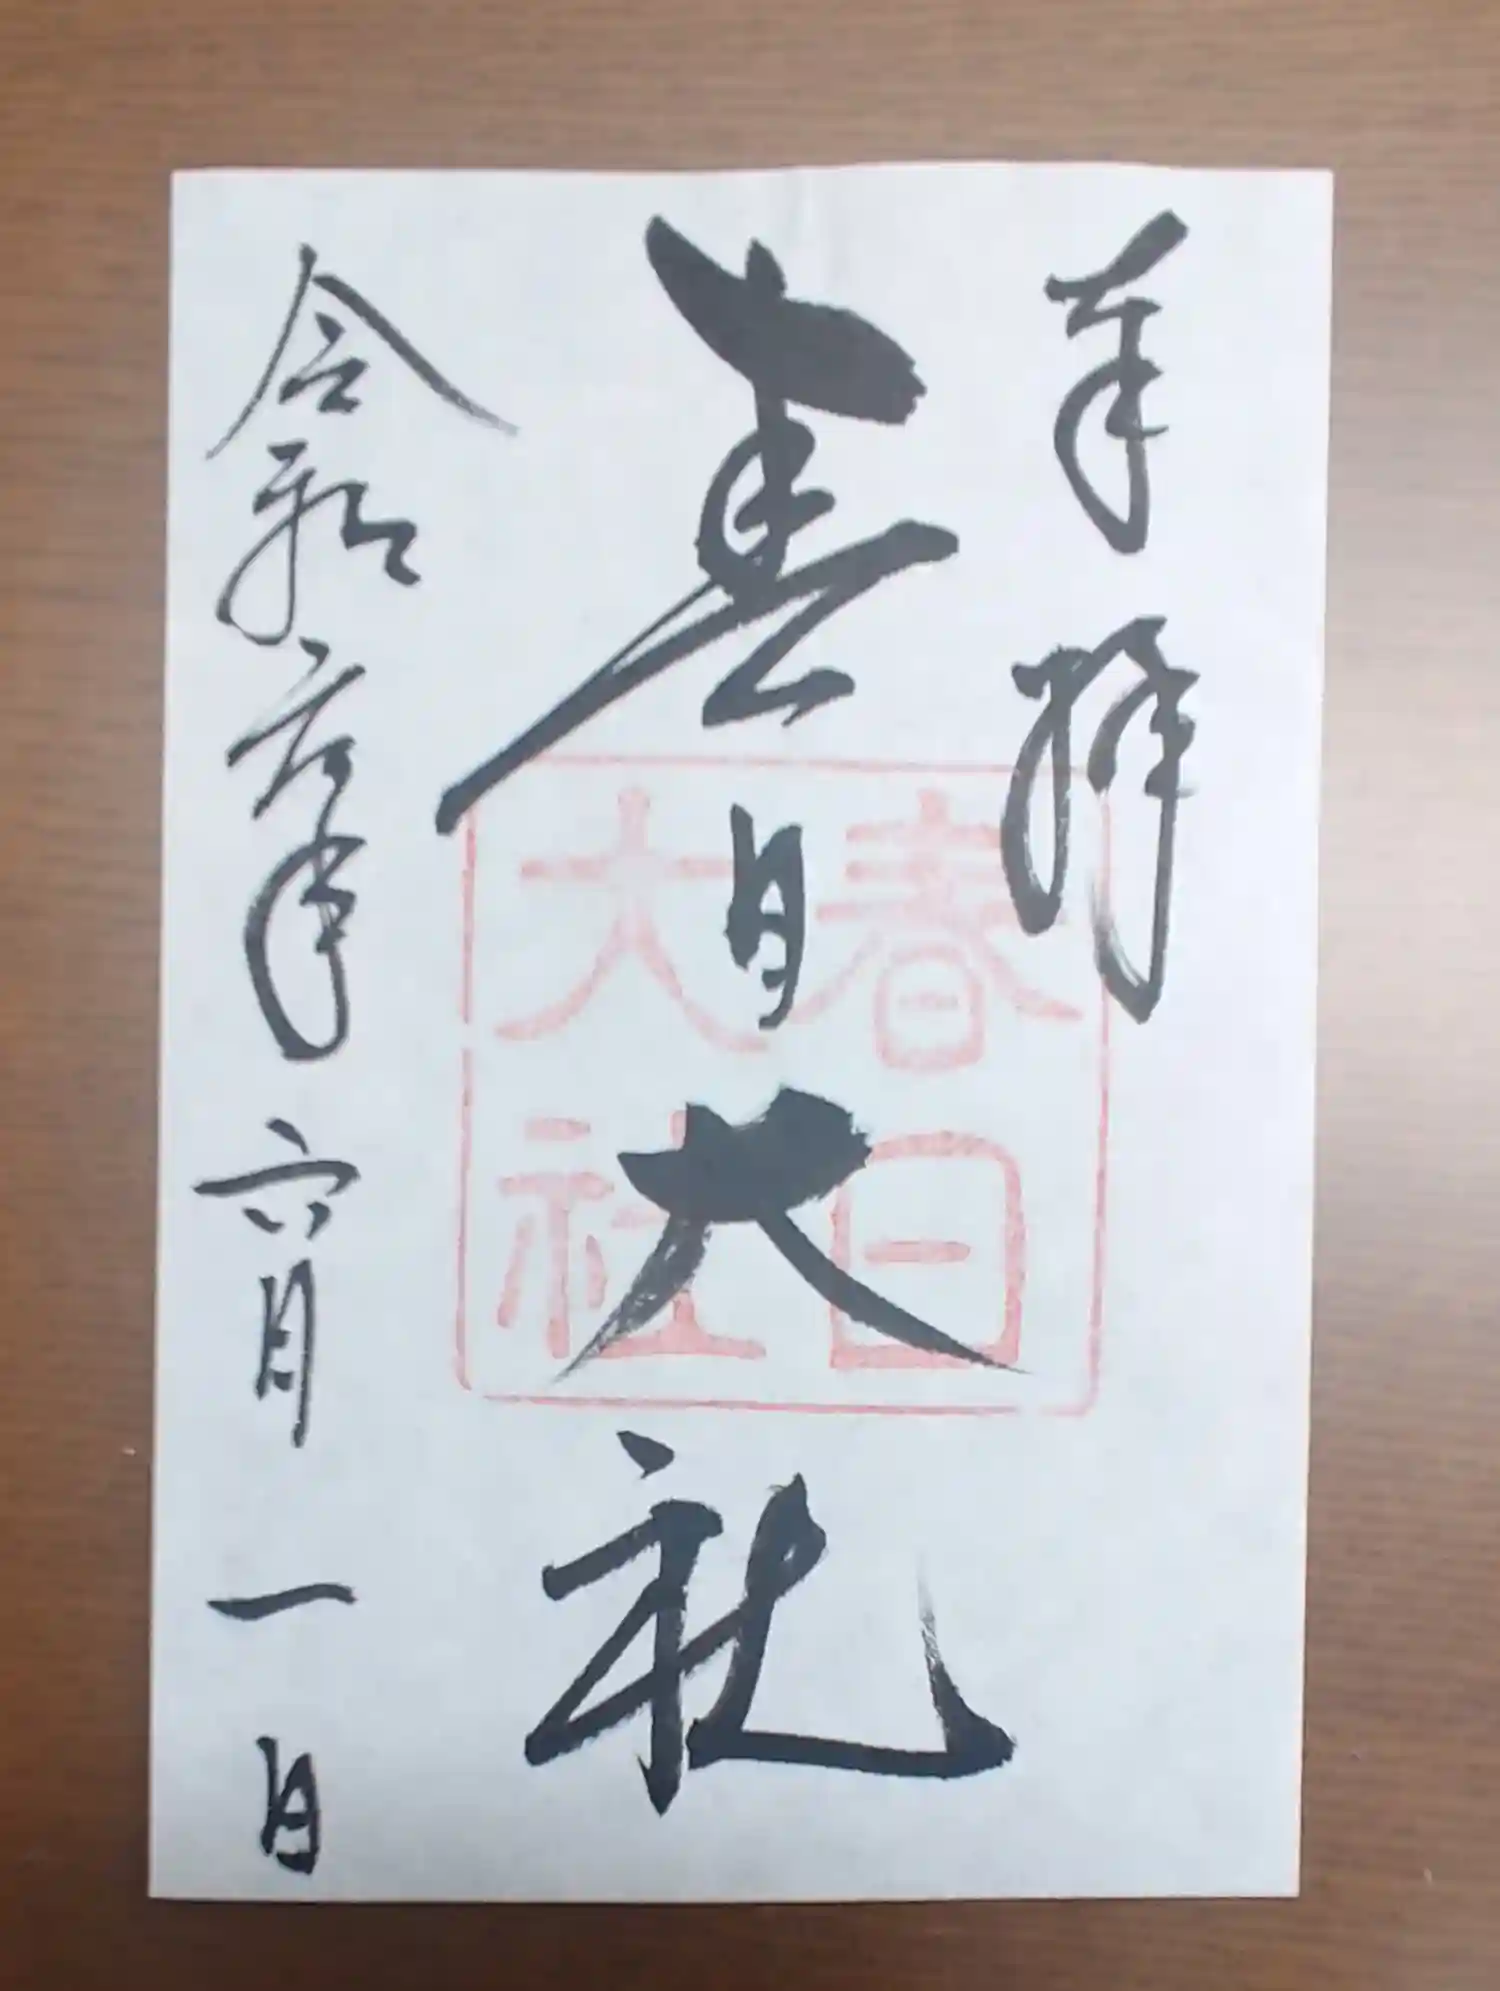 奉拝
春日大社
令和元年六月一日
春日
大社